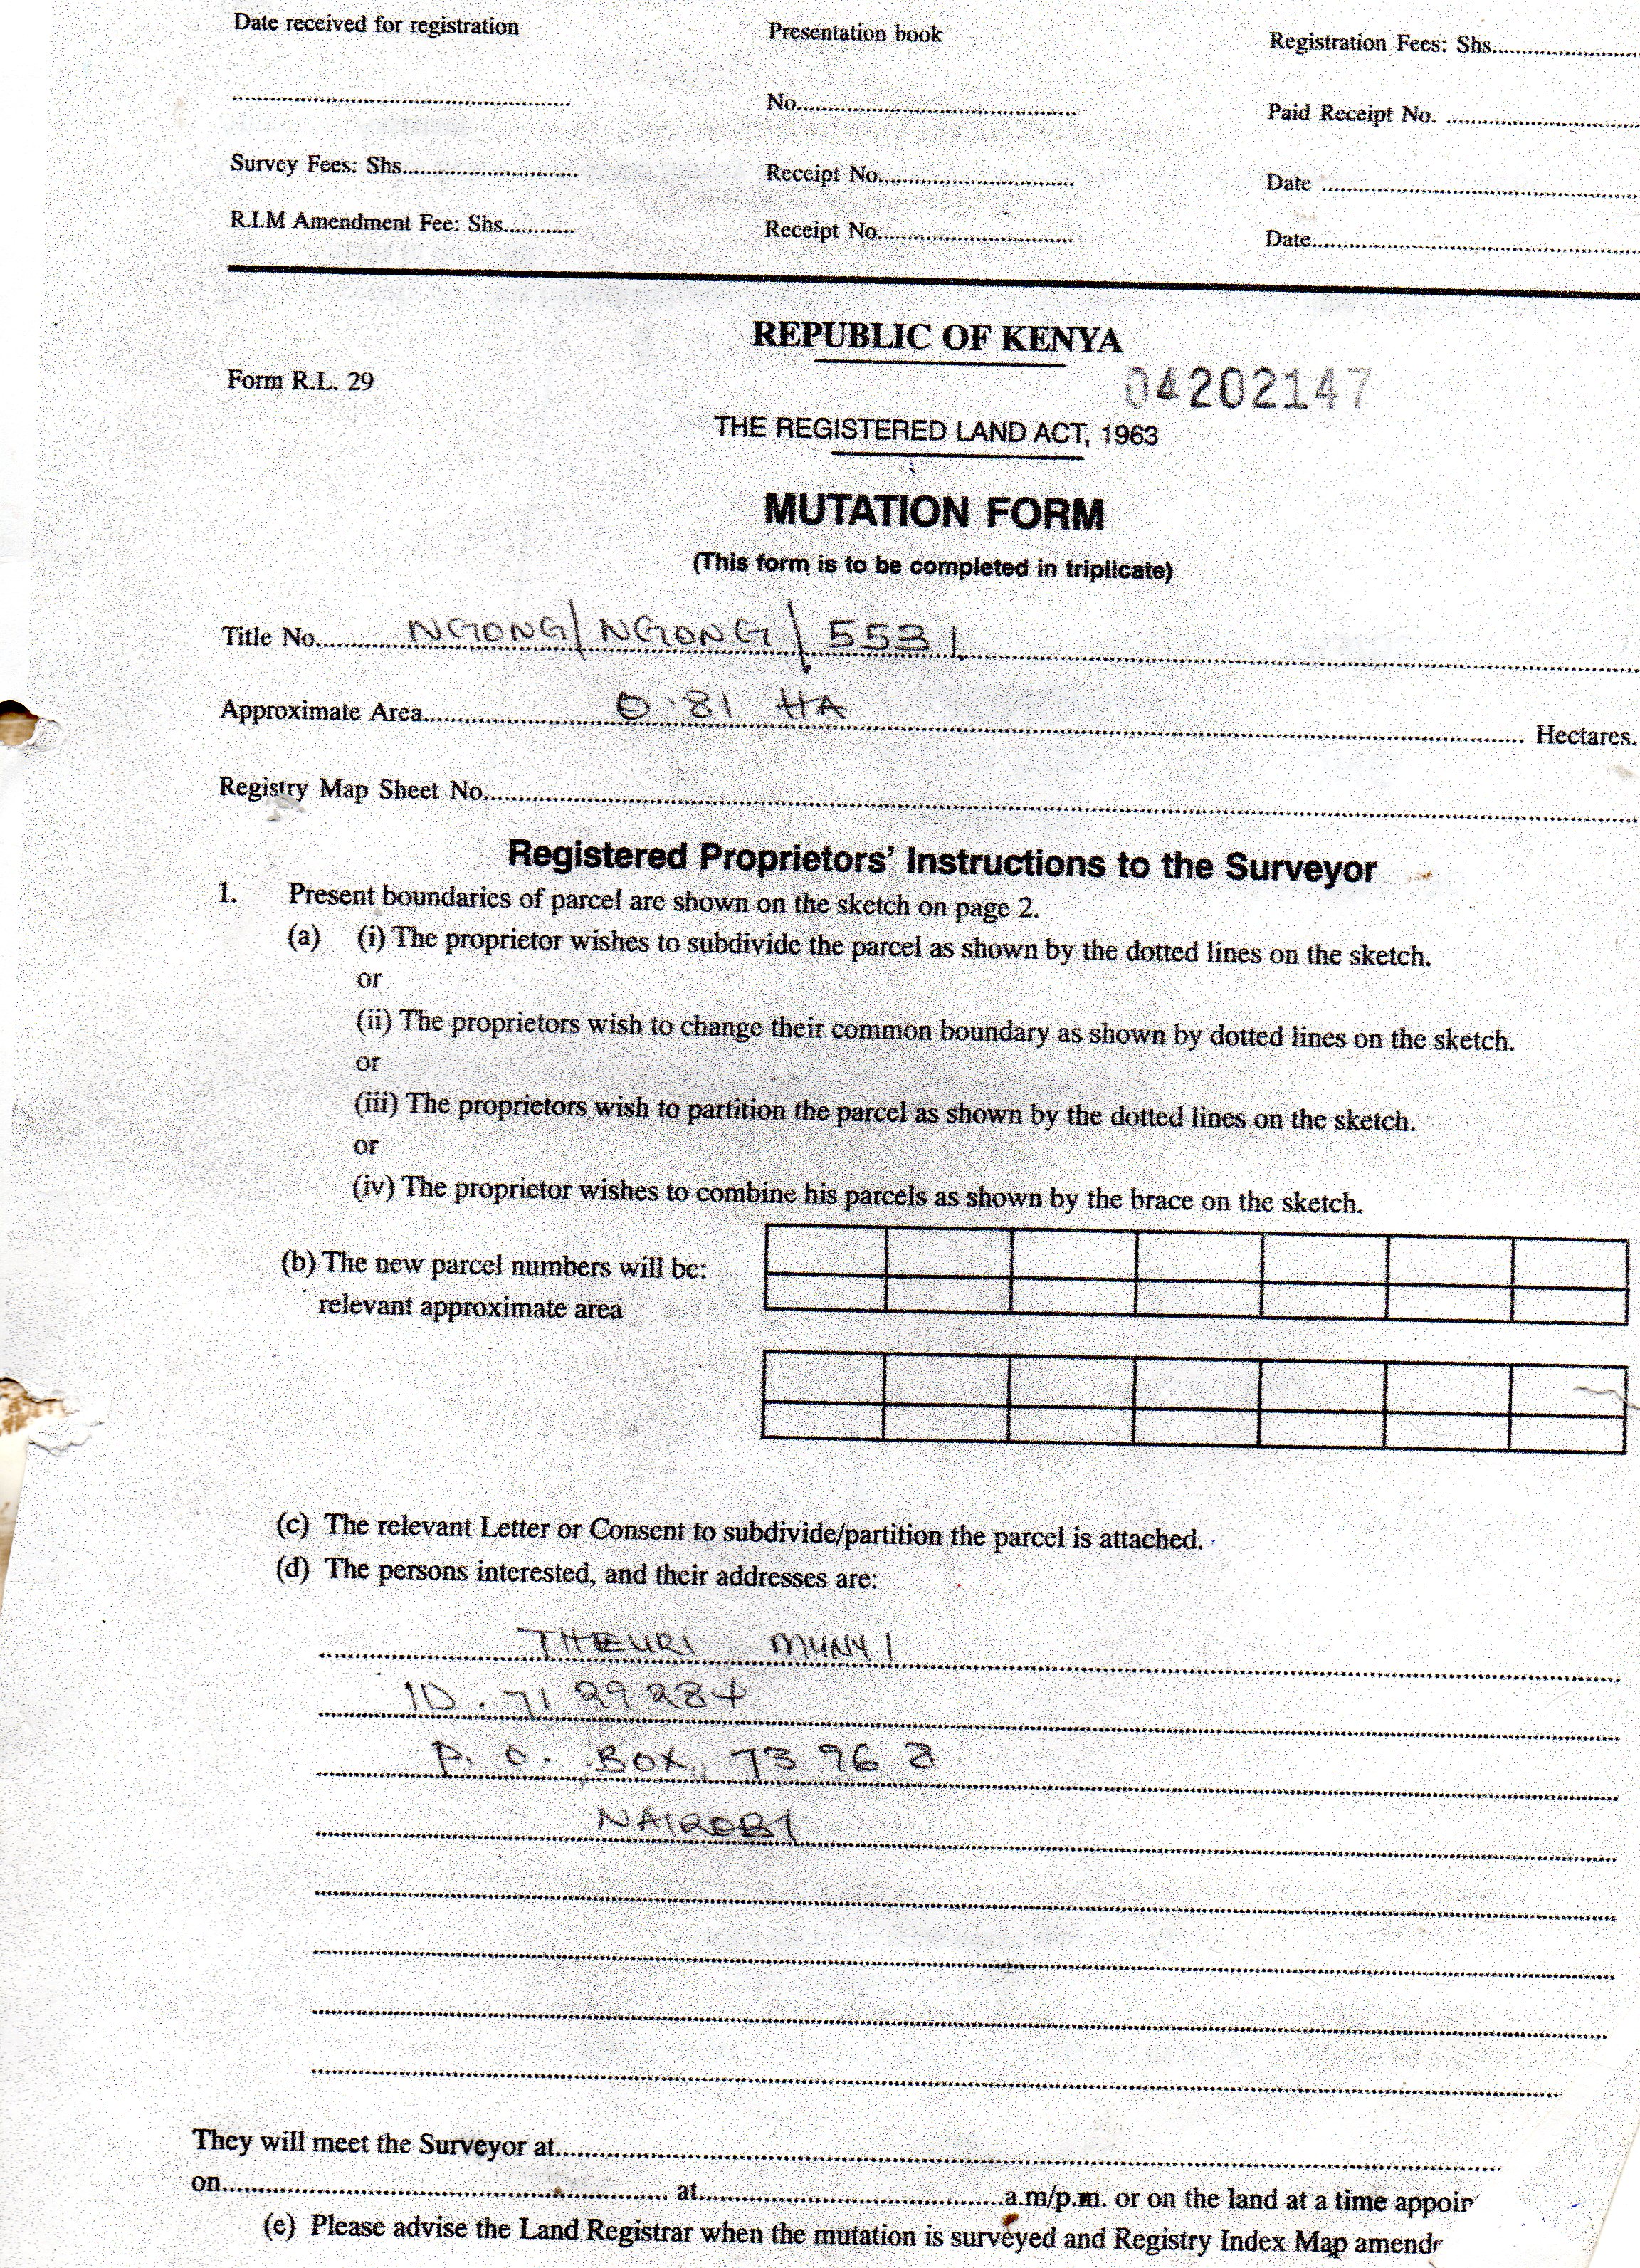 Date received for registration Presentation book Registration Fees: Shs..........
.......... No.......... Paid Receipt No. ..........
Survey Fees: Shs.......... Receipt No.......... Date ..........
R.I.M Amendment Fee: Shs.......... Receipt No.......... Date..........
REPUBLIC OF KENYA
Form R.L. 29 04202147
THE REGISTERED LAND ACT, 1963
MUTATION FORM
(This form is to be completed in triplicate)
Title No.......... NGONG/NGONG/5531
Approximate Area.......... 0.81 HA .......... Hectares.
Registry Map Sheet No..........
Registered Proprietors' Instructions to the Surveyor
1. Present boundaries of parcel are shown on the sketch on page 2.
(a) (i) The proprietor wishes to subdivide the parcel as shown by the dotted lines on the sketch.
or
(ii) The proprietors wish to change their common boundary as shown by dotted lines on the sketch.
or
(iii) The proprietors wish to partition the parcel as shown by the dotted lines on the sketch.
or
(iv) The proprietor wishes to combine his parcels as shown by the brace on the sketch.
(b) The new parcel numbers will be:
relevant approximate area
(c) The relevant Letter or Consent to subdivide/partition the parcel is attached.
(d) The persons interested, and their addresses are:
THEURI MUNYI
ID. 7129284
P. O. BOX 73968
NAIROBI
They will meet the Surveyor at..........
on.......... at..........a.m/p.m. or on the land at a time appoin
(e) Please advise the Land Registrar when the mutation is surveyed and Registry Index Map amende